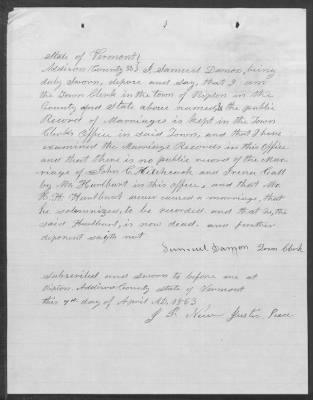 State of Vermont }
Addison County SS } I, Samuel Damon, being
duly Sworn, depose and say, that I am
the Town Clerk in the town of Ripton in the
County and State above named, the public
Record of Marriages is kept in the Town
Clerks Office in said Town, and that I have
examined the Marriage Records in this Office
and that there is no public record of the Mar-
riage of John C. Hitchcock and Irena Call
by Mr Hurlburt in this office, and that Mr.
H. Hurlburt never caused a marriage, that
he solemnized, to be recorded and that he, the
said Hurlburt, is now dead. and further
deponent saith not
Samuel Damon Town Clerk
Subscribed and Sworn to before me at
Ripton Addison County State of Vermont
this 7th day of April AD. 1863
Justice Peace